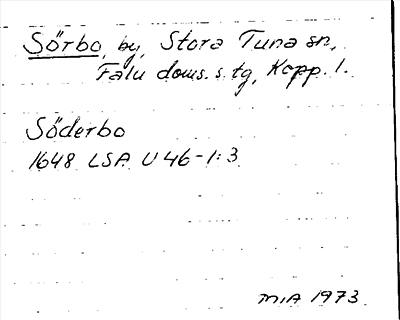 Sörbo, by, Stora Tuna sn,
Falu doms. s. tg, Kopp. l.
Söderbo
1648 LSA U 46-1:3
MIA 1973